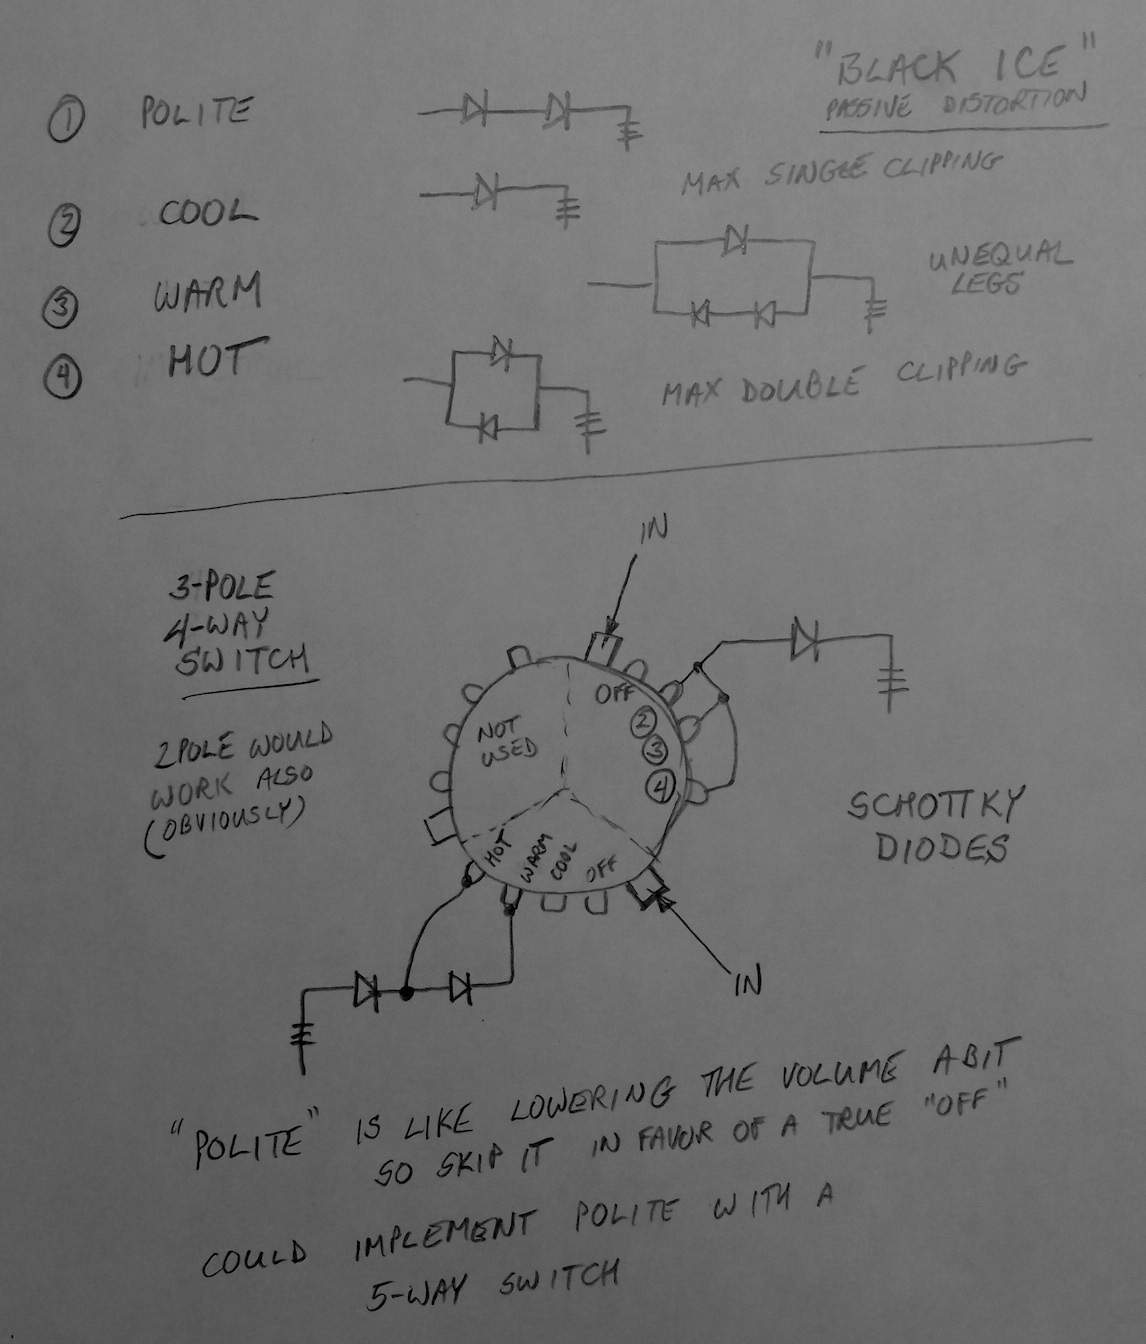 "BLACK ICE"
PASSIVE DISTORTION
① POLITE
MAX SINGLE CLIPPING
② COOL
UNEQUAL
LEGS
③ WARM
④ HOT
MAX DOUBLE CLIPPING
IN
3-POLE
4-WAY
SWITCH
2 POLE WOULD
WORK ALSO
(OBVIOUSLY)
NOT
USED
OFF
②
③
④
HOT
WARM
COOL
OFF
SCHOTTKY
DIODES
IN
"POLITE" IS LIKE LOWERING THE VOLUME A BIT
SO SKIP IT IN FAVOR OF A TRUE "OFF"
COULD IMPLEMENT POLITE WITH A
5-WAY SWITCH